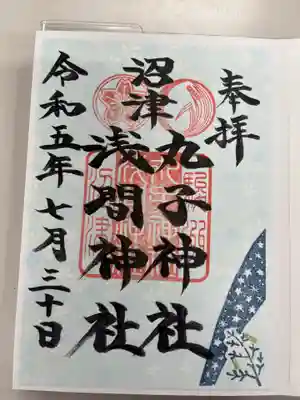 奉拝
沼津
丸子神社
浅間神社
令和五年七月三十日